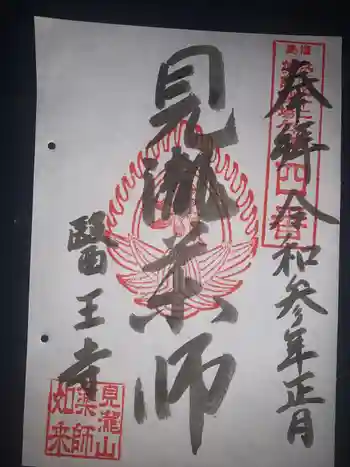 奉拝 令和参年正月
見瀧薬師
醫王寺
見瀧山
薬師
如来